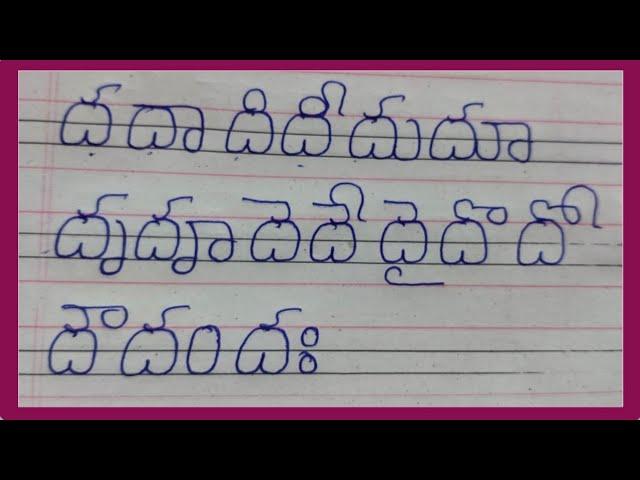 ద దా ది దీ దు దూ
దృ దౄ దె దే దై దొ దో
దౌ దం దః